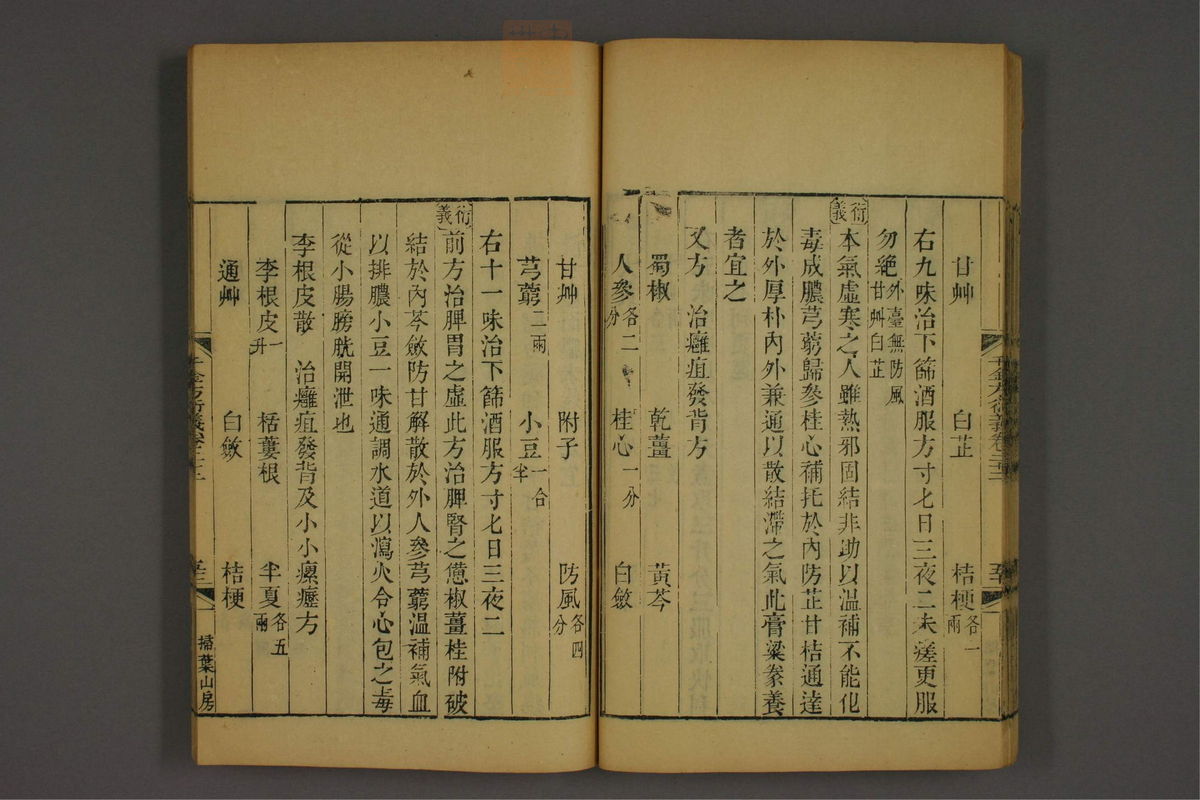 甘艸　白芷　桔梗各一兩
右九味治下篩酒服方寸匕日三夜二未瘥更服
勿絶外臺無防風甘艸白芷
衍義
本氣虛寒之人雖熱邪固結非助以溫補不能化
毒成膿芎藭歸參桂心補托於內防芷甘桔通達
於外厚朴內外兼通以散結滯之氣此膏粱豢養
者宜之
又方　治癰疽發背方
蜀椒　乾薑　黃芩
人參各二分　桂心一分　白斂
甘艸　附子　防風各四分
芎藭二兩　小豆一合半
右十一味治下篩酒服方寸匕日三夜二
衍義
前方治脾胃之虛此方治脾腎之憊椒薑桂附破
結於內芩斂防甘解散於外人參芎藭溫補氣血
以排膿小豆一味通調水道以瀉火合心包之毒
從小腸膀胱開泄也
李根皮散　治癰疽發背及小小瘰癧方
李根皮一升　栝蔞根　半夏各五兩
通艸　白斂　桔梗
千金方衍義卷二十二
掃葉山房